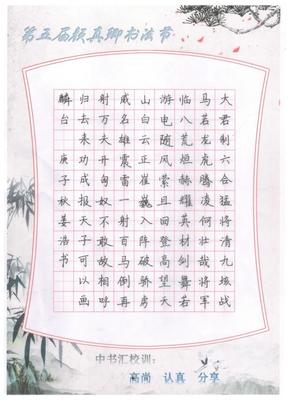 第五届颜真卿书法节
大君制六合猛将清九垓战
马若龙虎腾凌何壮哉将军
临八荒烜赫耀英材剑舞若
游电随风萦且回登高望天
山白云正崔嵬入阵破骄虏
威名雄震雷一射百马倒再
射万夫开匈奴不敢敌相呼
归去来功成报天子可以画
麟台 庚子秋姜浩书
中书汇校训：
高尚 认真 分享